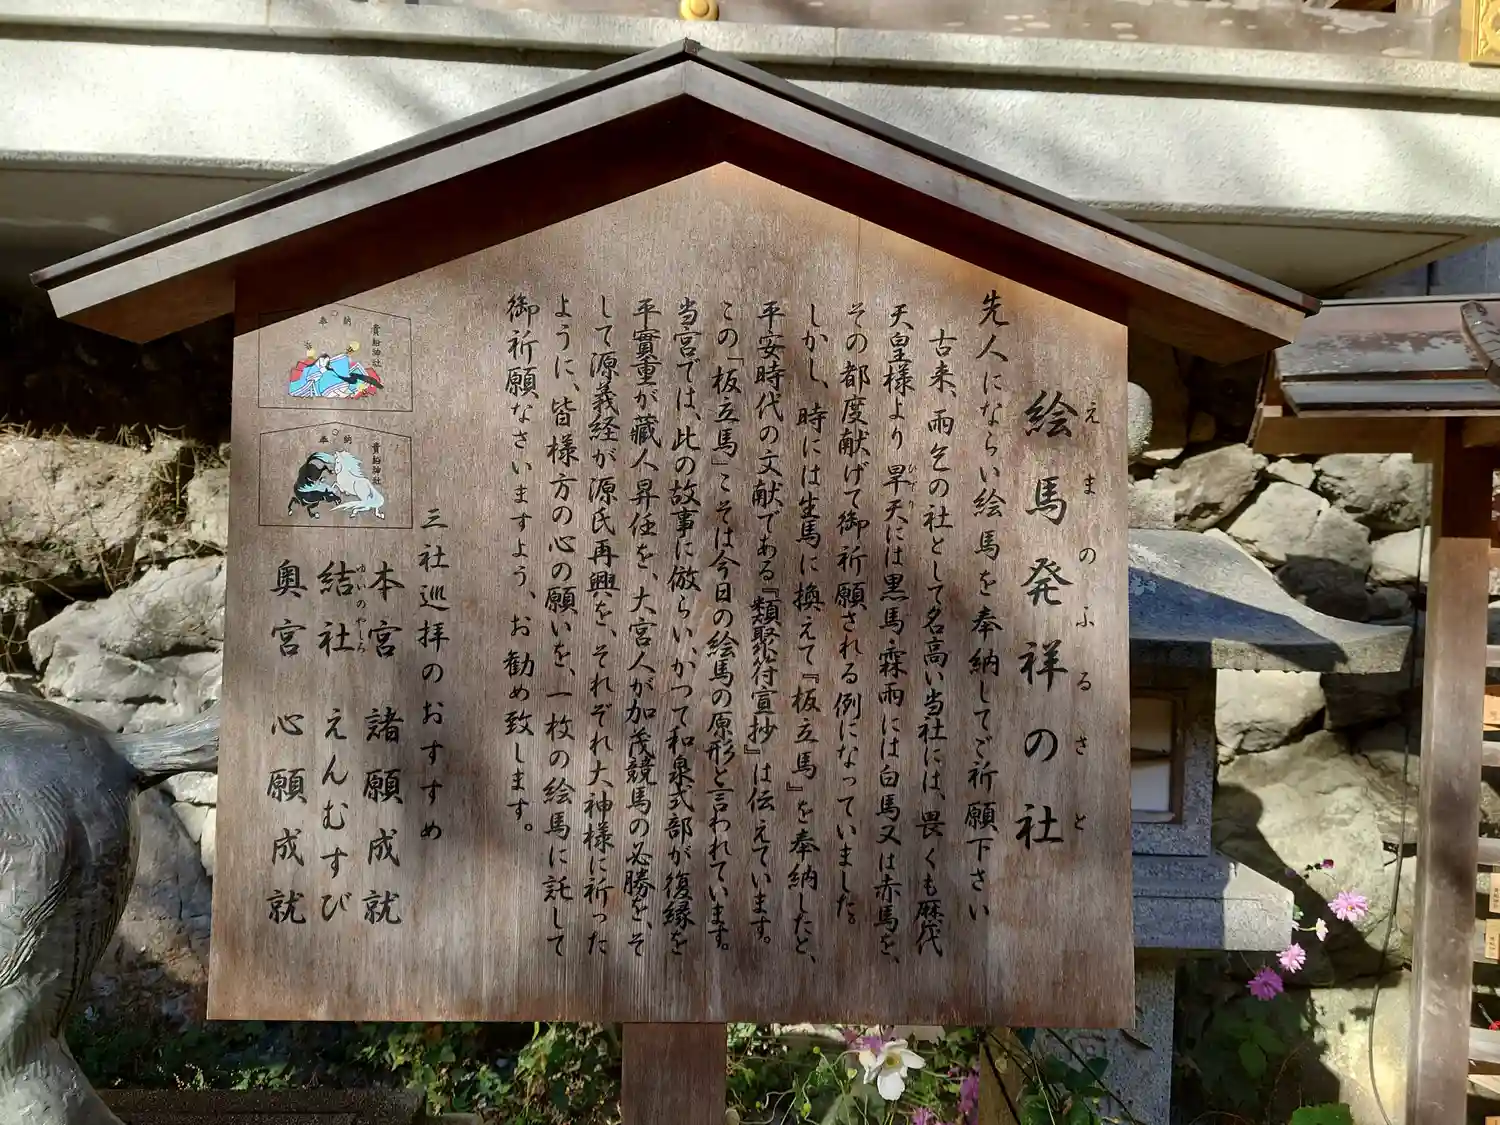 絵馬発祥の社
えまのふるさと
先人にならい絵馬を奉納してご祈願下さい
古来、雨乞の社として名高い当社には、畏くも歴代
天皇様より旱天には黒馬・霖雨には白馬又は赤馬を、
ひでり
その都度献げて御祈願される例になっていました。
しかし、時には生馬に換えて『板立馬』を奉納したと、
平安時代の文献である『類聚符宣抄』は伝えています。
この「板立馬」こそは今日の絵馬の原形と言われています。
当宮では、此の故事に倣らい、かつて和泉式部が復縁を
平實重が蔵人昇任を、大宮人が加茂競馬の必勝を、そ
して源義経が源氏再興を、それぞれ大神様に祈った
ように、皆様方の心の願いを、一枚の絵馬に託して
御祈願なさいますよう、お勧め致します。
三社巡拝のおすすめ
本宮 諸願成就
結社 えんむすび
ゆいのやしろ
奥宮 心願成就
奉納
貴船神社
奉納
貴船神社